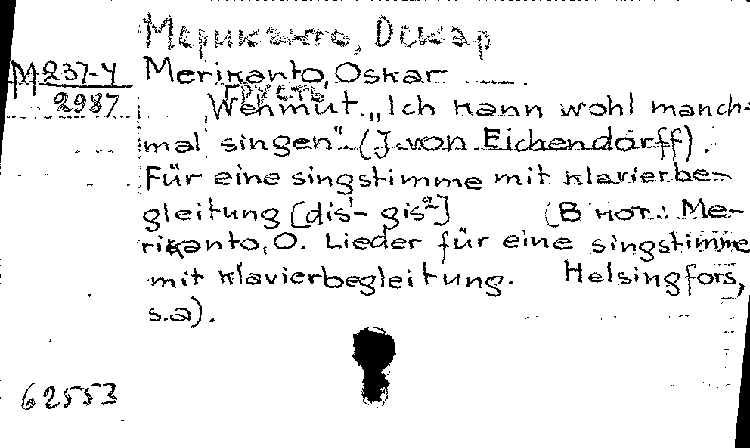 Мериканто, Оскар
М 237-4 Merikanto, Oskar
2987
Грусть
Wehmut. „Ich kann wohl manch-
mal singen“ (J. von Eichendorff).
Für eine singstimme mit klavierbe-
gleitung [dis¹- gis²] (В нот.: Me-
rikanto, O. Lieder für eine singstimme
mit klavierbegleitung. Helsingfors,
s.a).
62553